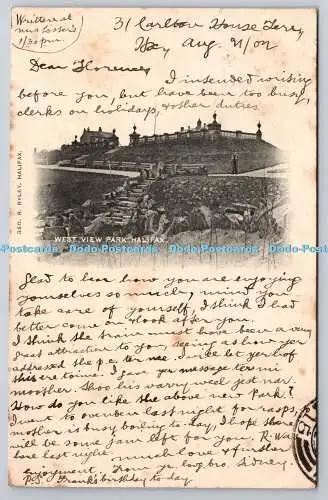 Written at
Miss Foster's
1/30 p.m.
31 Carlton House Terry
Hx, Aug. 21/02
Dear Florence,
I intended writing
before you, but have been too busy,
clerks on holidays, & other duties.
GEO. R. RYLEY, HALIFAX.
WEST VIEW PARK, HALIFAX.
Dado Postcards Dado Postcards Dado Postcards Dado Postcards
Glad to hear how you are enjoying
yourselves so much, mind you
take care of yourself, I think I had
better come on & look after you.
I think the must have been a very
great attraction to you, seeing as how yer
addressed the p.c. ter me. I'll let yer off
this ere toime. I guv yer message ter mi
moother. Shoo hus varry weel jest nar.
How do you like the above new Park?
I was to last night for rasps,
mother is busy boiling to-day, I hope there
will be some jam left for you. R. Wa
here last night. Much love & further
enjoyment. From yr. lovg. bro. Sidney.
P.S. Frank's birthday to day